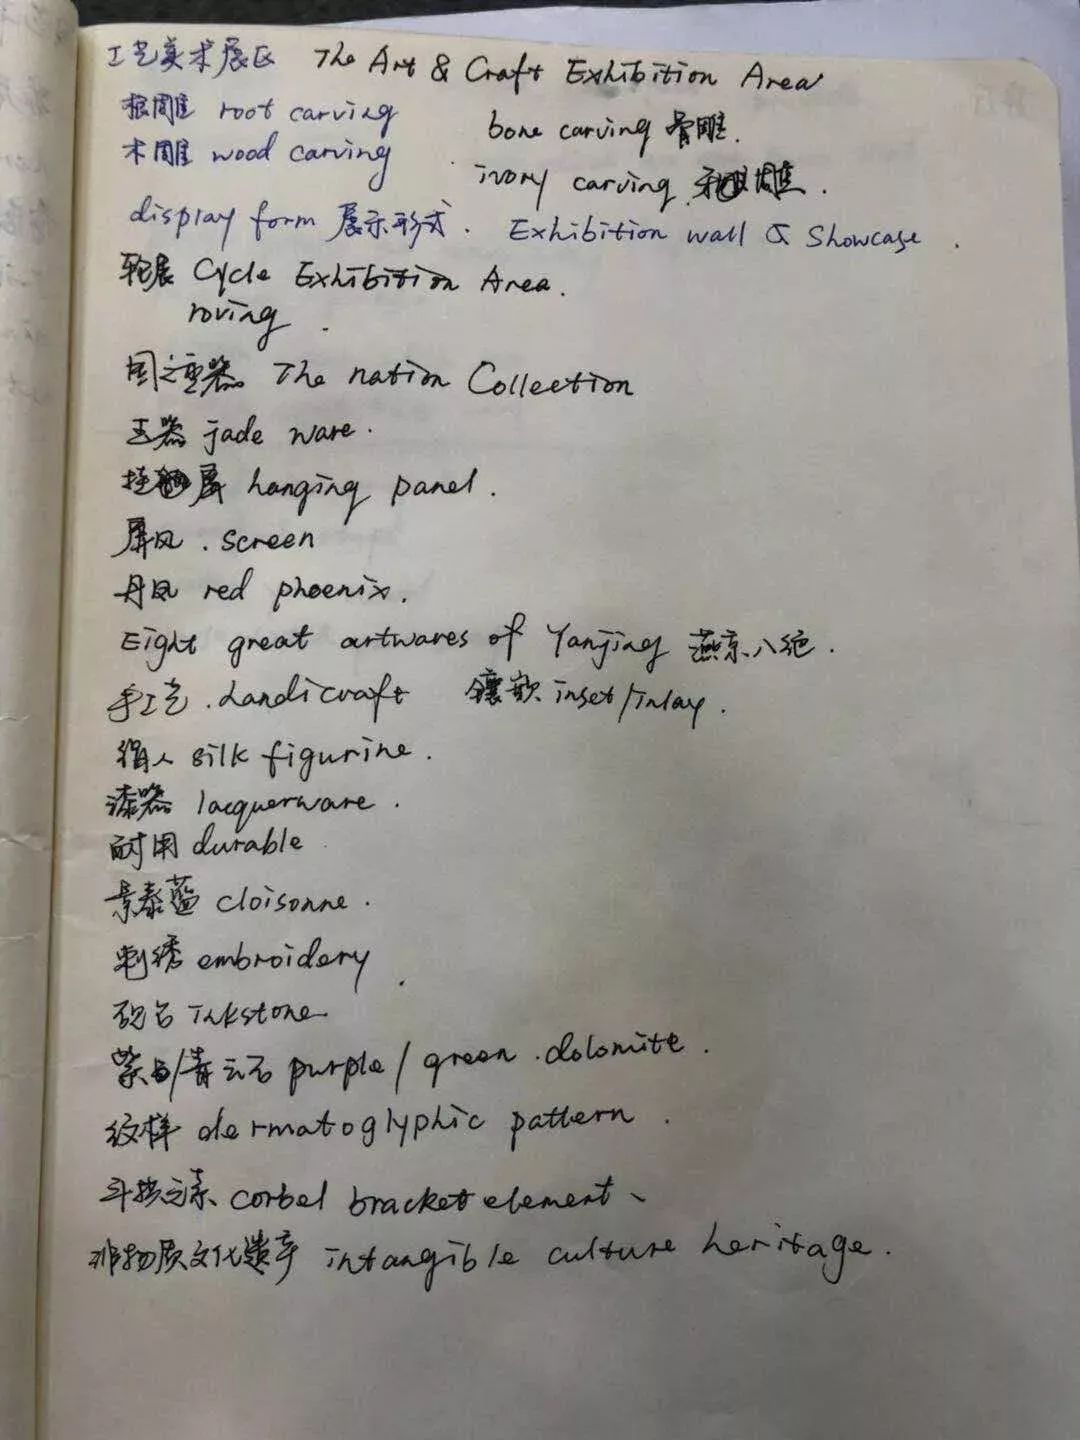 工艺美术展区 The Art & Craft Exhibition Area
根雕 root carving
bone carving 骨雕.
木雕 wood carving
ivory carving 牙雕.
display form 展示形式. Exhibition wall & Showcase.
轮展 Cycle Exhibition Area.
roving.
国之重器 The nation Collection
玉器 jade ware.
挂屏 hanging panel.
屏风. screen
丹凤 red phoenix.
Eight great artwares of Yanjing 燕京八绝.
手工艺. handicraft 镶嵌 inset/inlay.
绢人 silk figurine.
漆器 lacquerware.
耐用 durable
景泰蓝 cloisonne.
刺绣 embroidery.
砚台 inkstone
紫/青云石 purple/green dolomite.
纹样 dermatoglyphic pattern.
斗拱元素 corbel bracket element、
非物质文化遗产 intangible culture heritage.